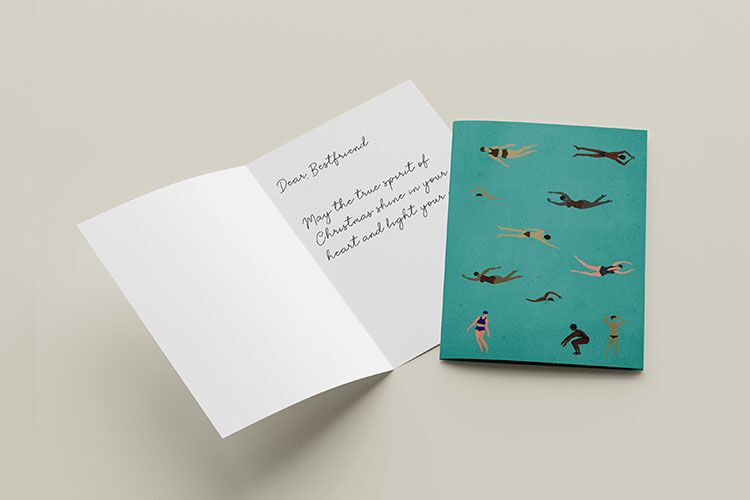 Dear, Bestfriend
May the true spirit of
Christmas shine in your
heart and light your